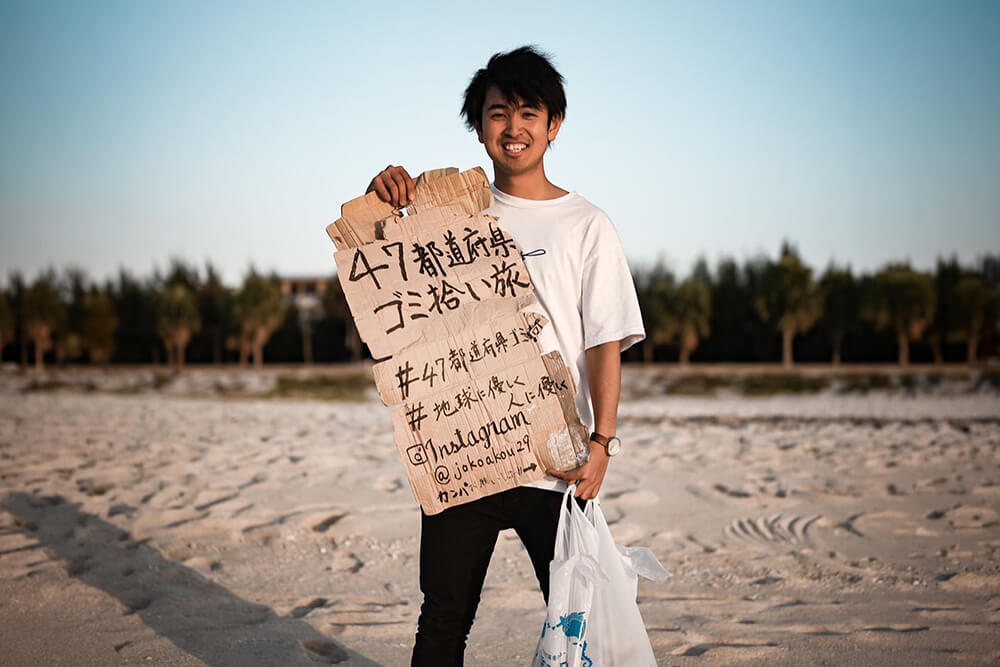 47都道府県
ゴミ拾い旅
#47都道府県ゴミ拾い
#地球に優しく
人に優しく
Instagram
@jokoakou29